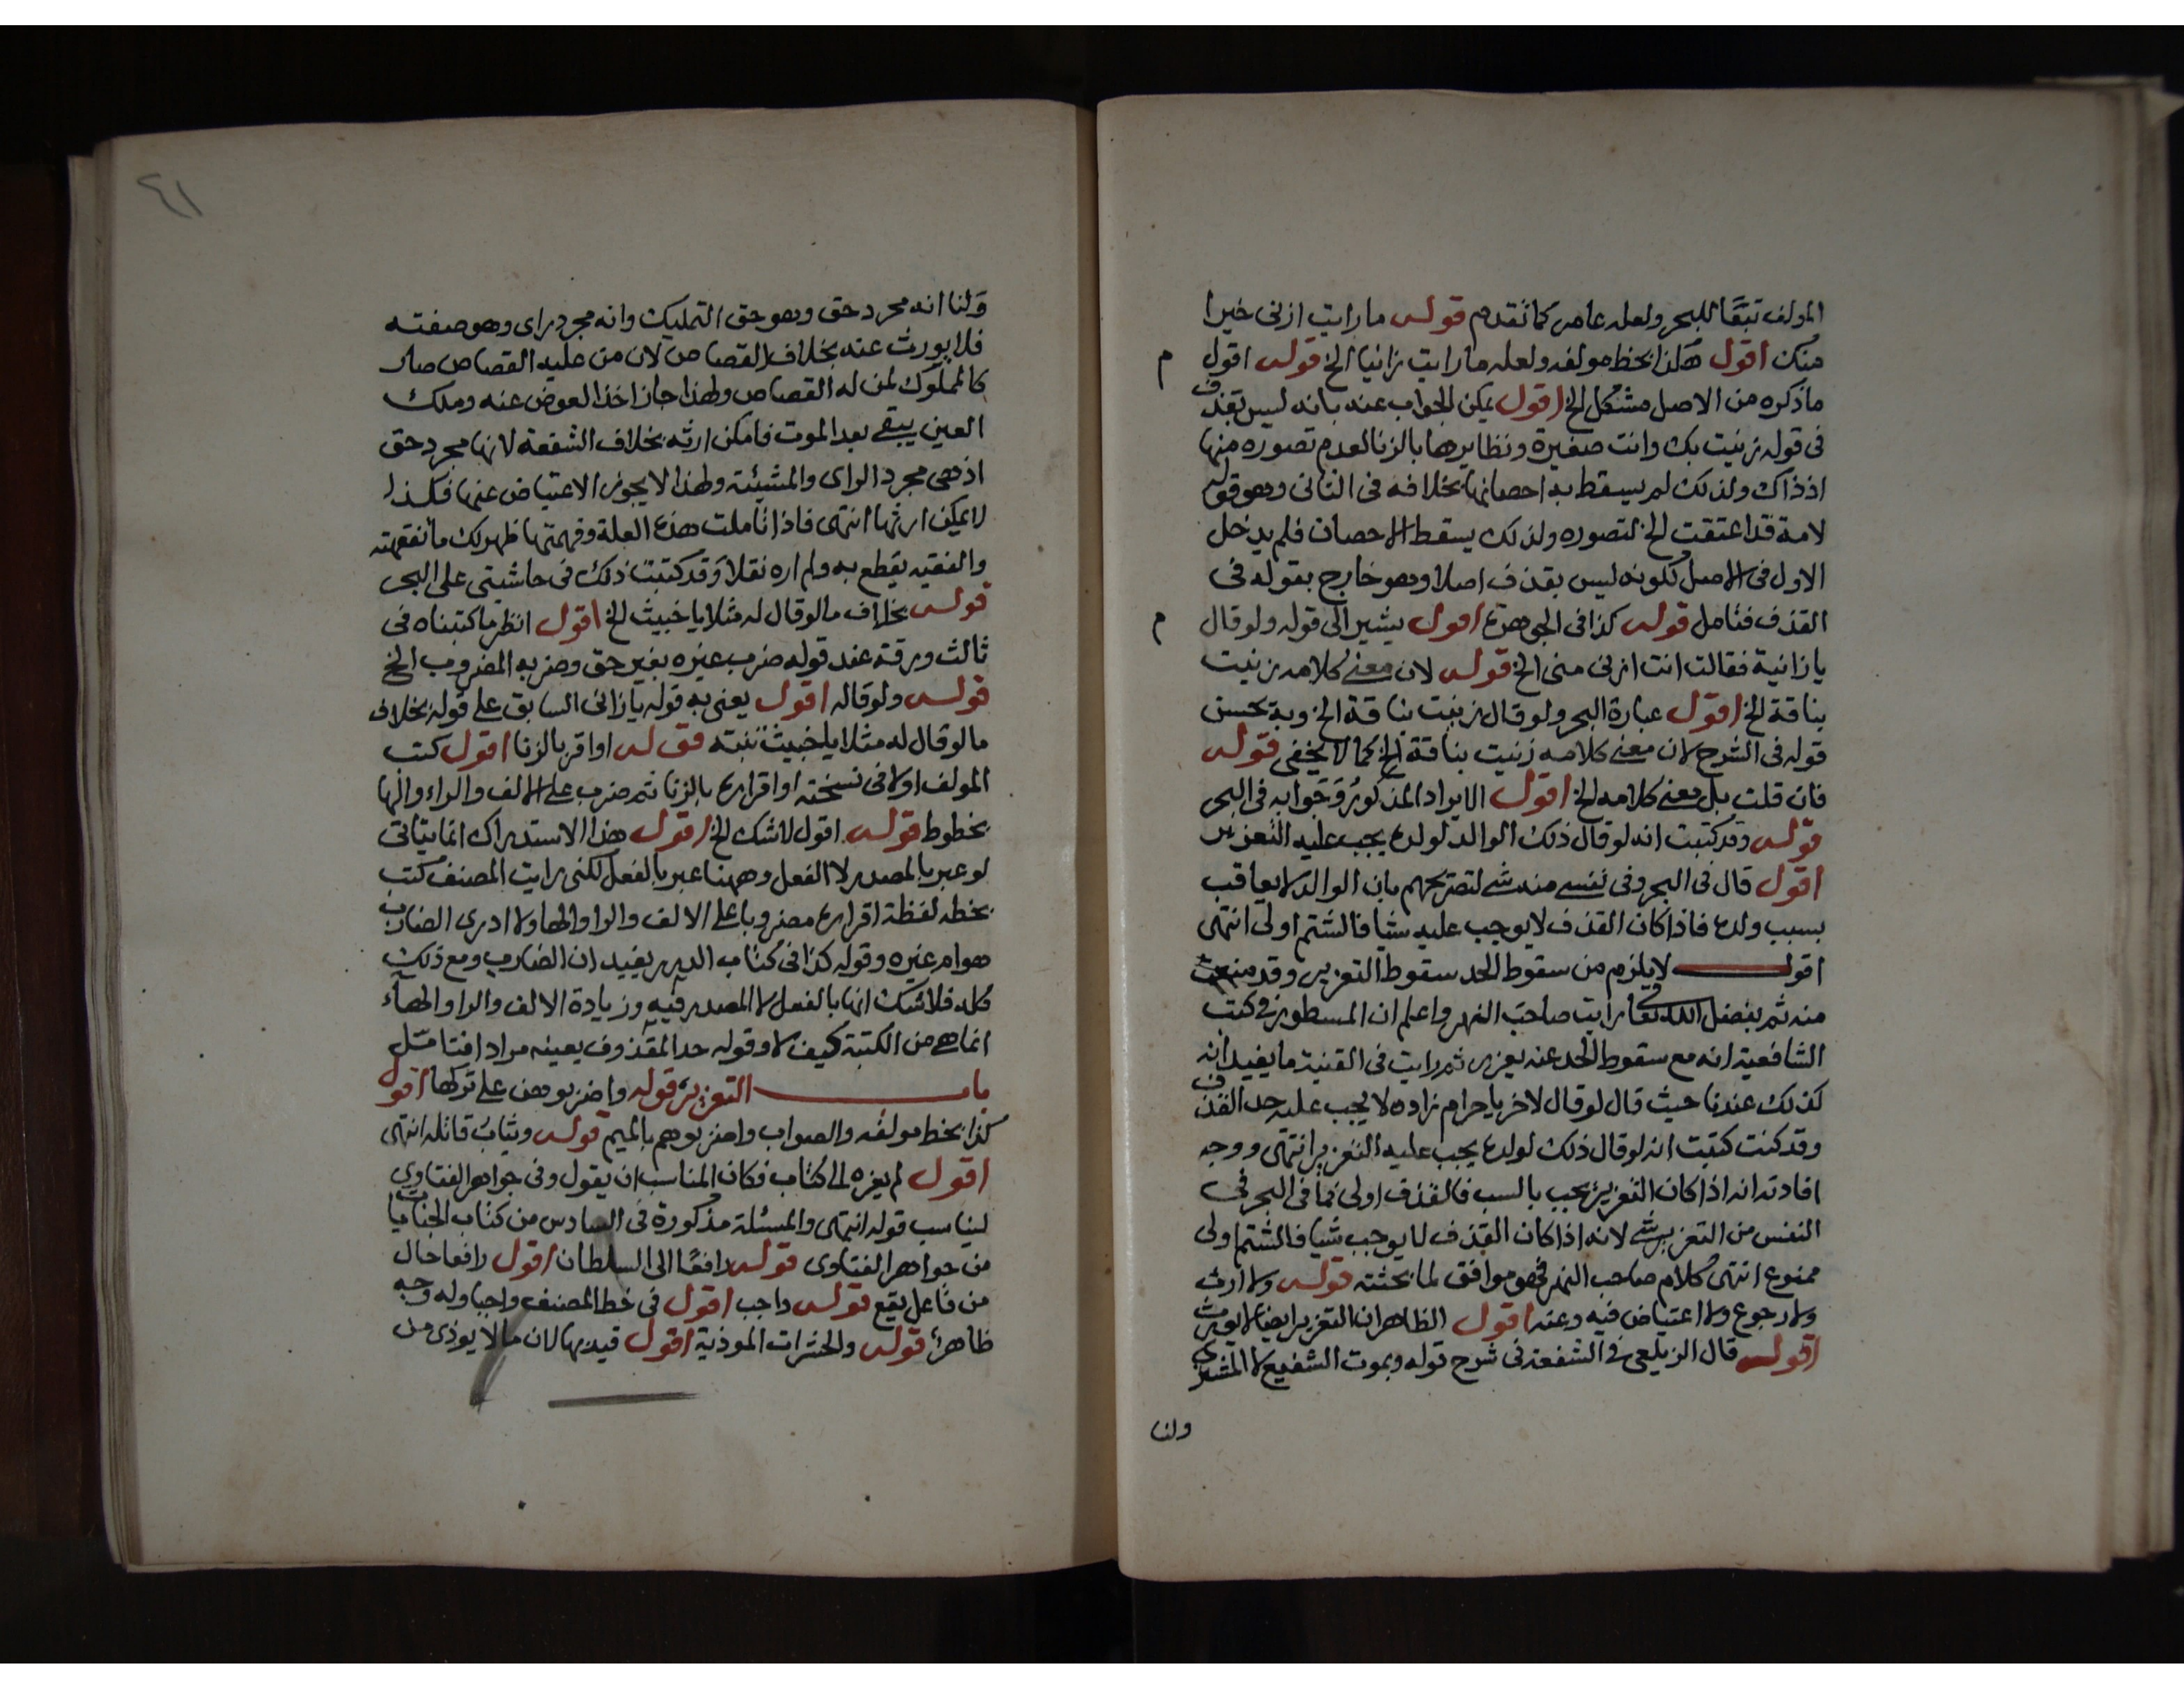 المولف تبعًا للبحر ولعله عامر كما تقدم قوله ما رايت ازنى خيرا
منك اقول هكذا بخط مولفه ولعله ما رايت زانيا الخ قوله اقول
م
ما ذكره من الاصل مشكل الخ اقول يمكن الجواب عنه بانه ليس بقذف
فى قوله زنيت بك وانت صغيرة ونظايرها بالزنا لعدم تصوره منها
اذ ذاك ولذلك لم يسقط به احصانها بخلافه فى الثانى وهو قوله
لامة قد اعتقت الخ لتصوره ولذلك يسقط الاحصان فلم يدخل
الاول فى الاصل لكونه ليس بقذف اصلا وهو خارج بقوله فى
القذف فتامل قوله كذا فى الجوهرة اقول يشير الى قوله ولو قال
م
يا زانية فقالت انت ازنى منى الخ قوله لان معنى كلامه زنيت
بناقة الخ اقول عبارة البحر ولو قال زنيت بناقة الخ وبه يحسن
قوله فى الشرح لان معنى كلامه زنيت بناقة الخ كما لا يخفى قوله
فان قلت بل معنى كلامه الخ اقول الايراد المذكور وجوابه فى البحر
قوله وقد كتبت انه لو قال ذلك الوالد لولده يجب عليه التعزير
اقول قال فى البحر وفى نفسى منه شى لتصريحهم بان الوالد لا يعاقب
بسبب ولده فاذا كان القذف لا يوجب عليه شيا فالشتم اولى انتهى
اقول لا يلزم من سقوط الحد سقوط التعزير وقد منعت
منه ثم بفضل الله تعا رايت صاحب النهر واعلم ان المسطور فى كتب
الشافعية انه مع سقوط الحد عنه يعزر ثم رايت فى القنية ما يفيد انه
كذلك عندنا حيث قال لو قال لاخر يا حرام زاده لا يجب عليه حد القذف
وقد كنت كتبت انه لو قال ذلك لولده يجب عليه التعزير انتهى ووجه
افادته انه اذا كان التعزير يجب بالسب فالقذف اولى فما فى البحر فى
النفس من التعزير شى لانه اذا كان القذف لا يوجب شيا فالشتم اولى
ممنوع انتهى كلام صاحب النهر فهو موافق لما بحثته قوله ولا ارث
ولا رجوع ولا اعتياض فيه وعنه اقول الظاهر ان التعزير ايضا لا يورث
اقول قال الزيلعى فى الشفعة فى شرح قوله وبموت الشفيع لا المشترى
ولنا
٤١
ولنا انه مجرد حق وهو حق التمليك وانه مجرد راى وهو صفته
فلا يورث عنه بخلاف القصاص لان من عليه القصاص صار
كالمملوك لمن له القصاص ولهذا جاز اخذ العوض عنه وملك
العين يبقى بعد الموت فامكن ارثه بخلاف الشفعة لانها مجرد حق
اذ هى مجرد الراى والمشيئة ولهذا لا يجوز الاعتياض عنها فكذا
لا يمكن ارثها انتهى فاذا تاملت هذه العلة وفهمتها ظهر لك ما تفقهته
والفقيه يقطع به ولم اره نقلا وقد كتبت ذلك فى حاشيتى على البحر
قوله بخلاف ما لو قال له مثلا يا خبيث الخ اقول انظر ما كتبناه فى
ثالث ورقة عند قوله ضرب غيره بغير حق وضربه المضروب الخ
قوله ولو قاله اقول يعنى به قوله يا زانى السابق على قوله بخلاف
ما لو قال له مثلا يا خبيث تنبه قوله او اقر بالزنا اقول كتب
المولف اولا فى نسخته او اقراره بالزنا ثم ضرب على الالف والراء والها
بخطوط قوله اقول لا شك الخ اقول هذا الاستدراك انما يتاتى
لو عبر بالمصدر لا الفعل وههنا عبر بالفعل لكنى رايت المصنف كتب
بخطه لفظة اقراره مضروبا على الالف والراو والها ولا ادرى الضارب
هو ام غيره وقوله كذا فى كتاب الدرر يفيد ان الضارب ومع ذلك
كله فلا شك انها بالفعل لا المصدر فيه وزيادة الالف والراو والهاء
انما هى من الكتبة كيف لا وقوله حد المقذوف يعينه مراد افتامل
باب التعزير قوله واضربوهن على تركها اقول
كذا بخط مولفه والصواب واضربوهم بالميم قوله ويثاب قاتله انتهى
اقول لم يعزه الى كتاب فكان المناسب ان يقول وفى جواهر الفتاوى
ليناسب قوله انتهى والمسئلة مذكورة فى السادس من كتاب الجنايات
من جواهر الفتاوى قوله رافعًا الى السلطان اقول رافعا حال
من فاعل يقع قوله واجب اقول فى خط المصنف واجبا وله وجه
ظاهر قوله والحشرات الموذية اقول قيد بها لان ما لا يوذى من